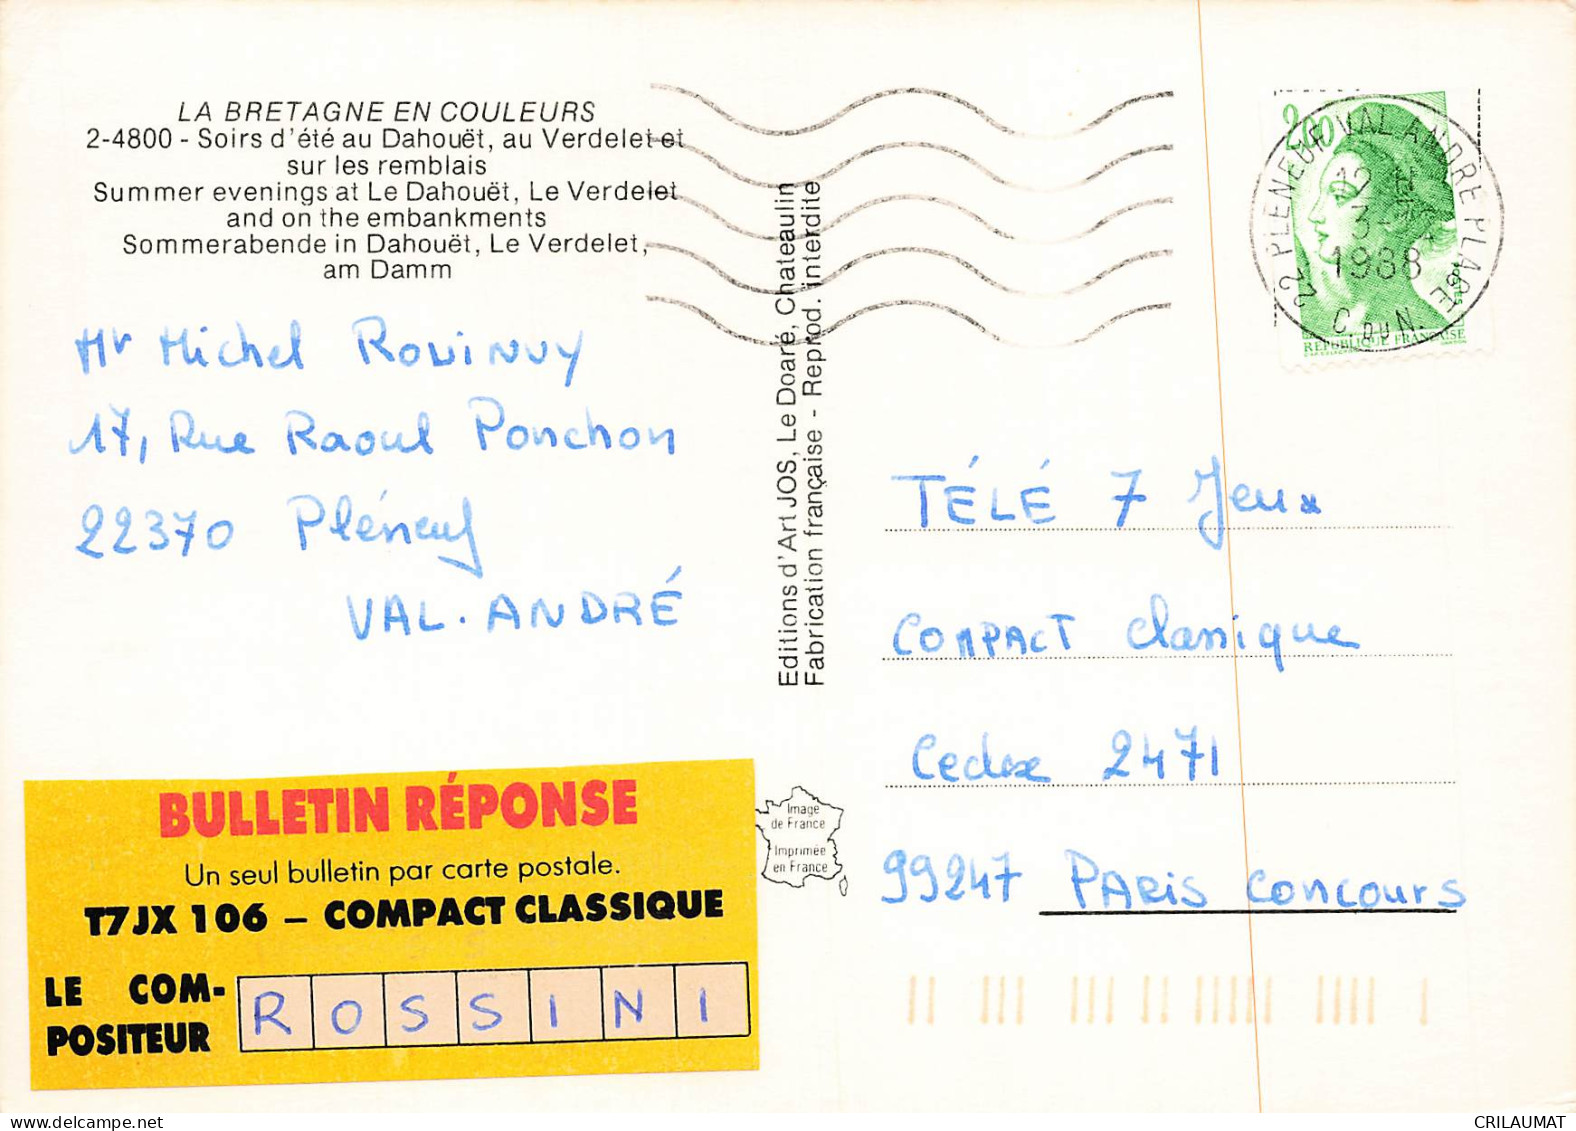 LA BRETAGNE EN COULEURS
2-4800 - Soirs d'été au Dahouët, au Verdelet et
sur les remblais
Summer evenings at Le Dahouët, Le Verdelet
and on the embankments
Sommerabende in Dahouët, Le Verdelet,
am Damm
Mr Michel
17, Rue Raoul Ponchon
22370 Pléneuf
VAL. ANDRÉ
Editions d'Art JOS, Le Doaré, Chateaulin
Fabrication française - Reprod. interdite
2,00
RÉPUBLIQUE FRANÇAISE
22 PLENEUF VAL ANDRE PLAGE
12 H
3-
1988
C. DU N.
TÉLÉ 7 Jeux
COMPACT Classique
Cedex 2471
99247 PARIS CONCOURS
Image
de France
Imprimée
en France
BULLETIN RÉPONSE
Un seul bulletin par carte postale.
T7JX 106 – COMPACT CLASSIQUE
LE COM-
POSITEUR
R O S S I N I
CRILAUMAT